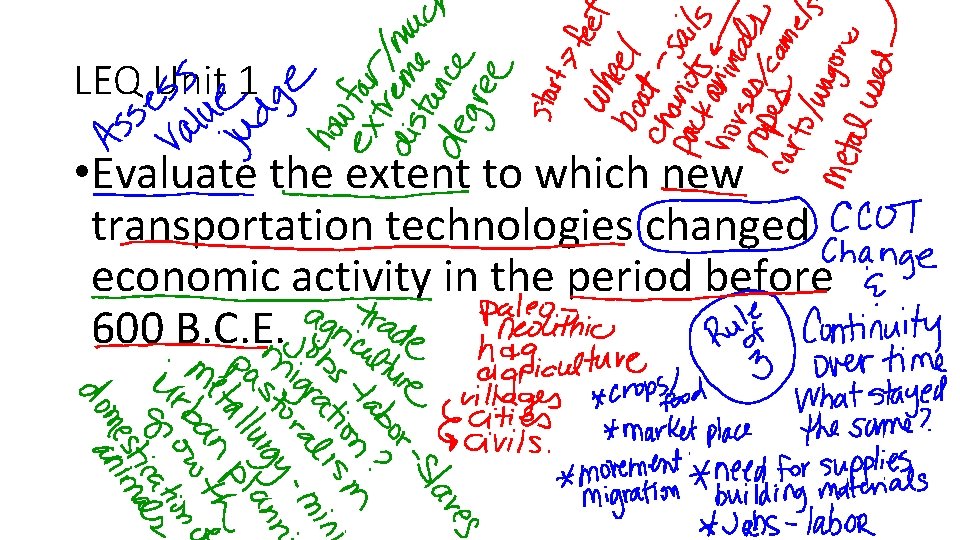 LEQ Unit 1
Assess
value
judge
how far/much
extreme
distance
degree
start => feet
wheel
boat - sails
chariots
pack animals
horses/camels
ropes
carts/wagons
metal used
•Evaluate the extent to which new
transportation technologies changed
economic activity in the period before
600 B.C.E.
CCOT
Change
&
Continuity
over time
What stayed
the same?
Rule
of
3
paleo->
neolithic
h&g
agriculture
villages
cities
civils.
trade
agriculture
jobs - labor - slaves
migration?
pastoralism
metallurgy - mini
urban planni
growth
domestication of
animals
*crops/food
*market place
*movement
migration
*need for supplies
building materials
*Jobs - labor